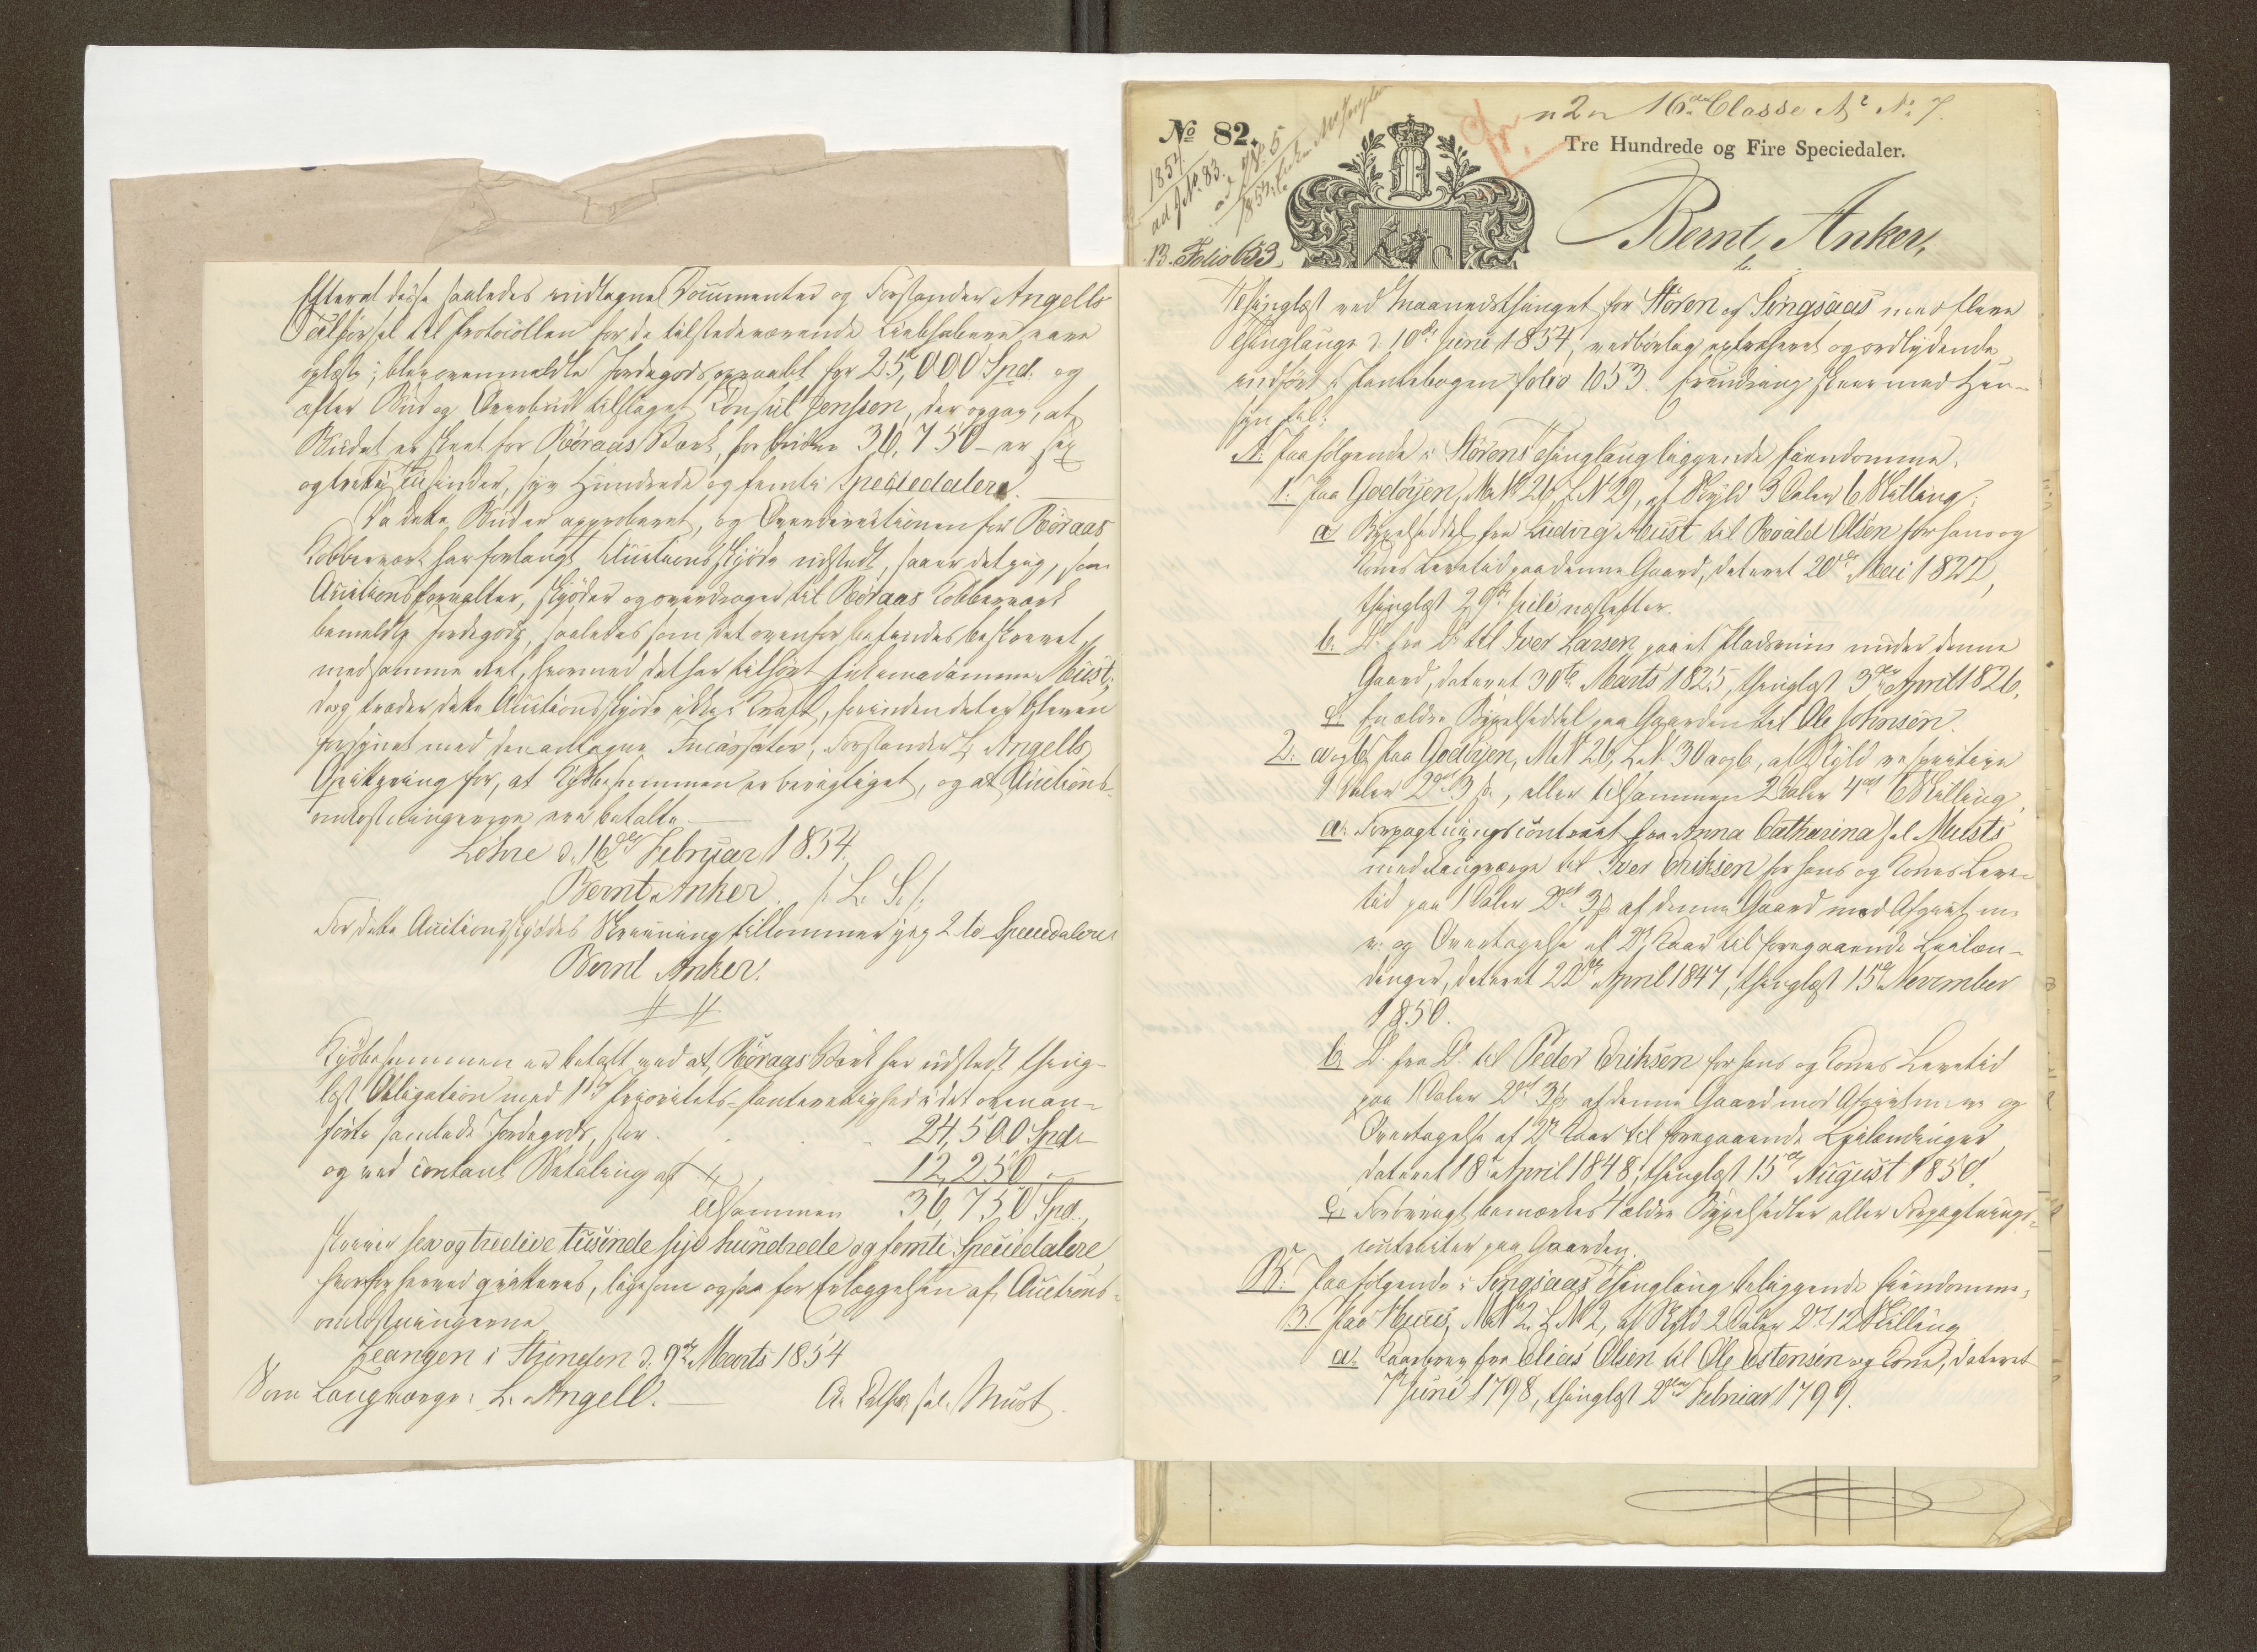 Efterat disse saaledes modtagne Documenter og Forstander Angells
Tilførsel til Protocollen for de tilstedeværende Liebhabere vare
oplæste, blev ovenmeldte Jordegods opraabt for 25,000 Spd. og
efter Bud og Overbud tilslaget Consul Jenssen, der opgav, at
Budet er skeet for Röraas Værk, for Summen 36,750 – er sex
og tredive Tusinder, syv Hundrede og femti Speciedalere.
Da dette Bud er approberet, og Overdirectionen for Röraas
Kobberværk har forlangt Auctionsskjøde udstedt, saa er det jeg, som
Auctionsforvalter, skjøder og overdrager til Röraas Kobberværk
bemeldte Jordegods, saaledes som det ovenfor befindes beskrevet,
med samme Ret, hvormed det har tilhørt Enkemadamme Must;
dog træder dette Auctionsskjøde ikke i Kraft, forinden det er bleven
forsynet med den antagne Incassator, Forstander L. Angells
Qvittering for, at Kjøbesummen er berigtiget, og at Auctions-
omkostningerne ere betalte.
Løhre d. 16de Februar 1854.
Bernt Anker. /: L. S. :/
For dette Auctionsskjødes Skrivning tilkommer jeg 2 to Speciedalere
Bernt Anker.
Kjøbesummen er betalt ved at Röraas Værk har udstedt thing-
læst Obligation med 1ste Prioritets-Panterettighed i det ovenan-
førte samlede Jordegods, stor 24,500 Spd
og ved contant Betaling af 12,250 "
tilsammen 36,750 Spd.
skriver sex og tredive tusinde syv hundrede og femti Speciedalere
hvorfor herved qvitteres, ligesom ogsaa for Erlæggelsen af Auctions-
omkostningerne
Leangen i Strinden d. 9de Marts 1854
Som Laugværge: L. Angell. A. Cathr. sal. Must.
No 82.
1854
ad No. 83.
B. Folio 653
"2" 16de Classe No. 7.
Tre Hundrede og Fire Speciedaler.
Bernt Anker,
Thinglæst ved Maanedsthinget for Stören og Singsaas med flere
Thinglauge d. 10de Juni 1854, vedbørlig extraheret og ordlydende
indført i Pantebogen folio 653. Erindring skeer med Hen-
syn til:
A. Paa følgende i Störens Thinglaug liggende Eiendomme,
1. Paa Godöyen, M.N. 26, L.N. 29, af Skyld 3 Daler 6 Skilling:
a. Bygselseddel fra Ludvig Must til Roald Olsen for hans og
Kones Levetid paa denne Gaard, dateret 20de Mai 1822,
thinglæst 29de Juli næstefter.
b. Do. fra Do. til Iver Larsen paa et Pladsrum under denne
Gaard, dateret 30te Marts 1825, thinglæst 3die April 1826.
c. En ældre Bygselseddel paa Gaarden til Ole Johnsen.
2. a og b, Paa Godöyen, M.N. 26, L.N. 30 a og b, af Skyld respective
1 Daler 2 Ort 3 s., eller tilsammen 2 Daler 4 Ort 6 Skilling,
a. Forpagtningscontract fra Anna Catharina sal Musts
med Laugværge til Iver Eriksen for hans og Kones Leve-
tid paa 1 Daler 2 Ort 3 s af denne Gaard mod Afgivt m.
v. og Overtagelse af Do. Kaar til foregaaende Leilæn-
dinger, dateret 22de April 1847, thinglæst 15de November
1850.
b. Do. fra Do. til Peder Eriksen for hans og Kones Levetid
paa 1 Daler 2 Ort 3 s af denne Gaard mod Afgivt m.v. og
Overtagelse af Do. Kaar til foregaaende Leilændinger,
dateret 18de April 1848, thinglæst 15de August 1850.
c. Forøvrigt bemærkes 4 ældre Bygselsedler eller Forpagtnings-
contracter paa Gaarden.
B. Paa følgende i Singsaas Thinglaug beliggende Eiendomme,
3. Paa M.N. 2, L.N. 2, af Skyld 2 Daler 2 Ort 12 Skilling
a. Kaarbrev fra Elias Olsen til Ole Estensen og Kone, dateret
7de Juni 1798, thinglæst 2den Februar 1799.